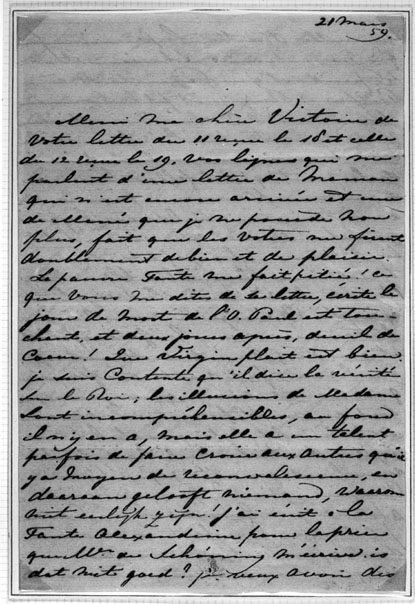 21 Mars
59.
Merci ma chère Victoire de
votre lettre du 11 reçue le 18 et celle
du 12 reçue le 19. Vos lignes qui me
parlent d'une lettre de Maman
qui n'est encore arrivée et une
de Mémé que je ne possède non
plus, fait que les vôtres me firent
doublement de bien et de plaisir.
La pauvre Tante me fait pitié! ce
que vous me dites de sa lettre, écrite le
jour de mort de l'O. Paul est tou-
chant, et deux jours après, deuil de
Coeur! Que Virgin plait est bien
je suis Contente qu'il dise la vérité
sur le Roi; les illusions de Madame
sont incompréhensibles, au fond
il n'y en a, mais elle a un talent
parfois de faire croire aux autres qu'il
y a moyen de reconvalescence, en
daaraan gelooft niemand, waarom
niet eerlijk zijn! j'ai écrit à la
Tante Alexandrine pour la prier
que Mme de Schöning m'écrive. is
dat niet goed? je veux avoir des